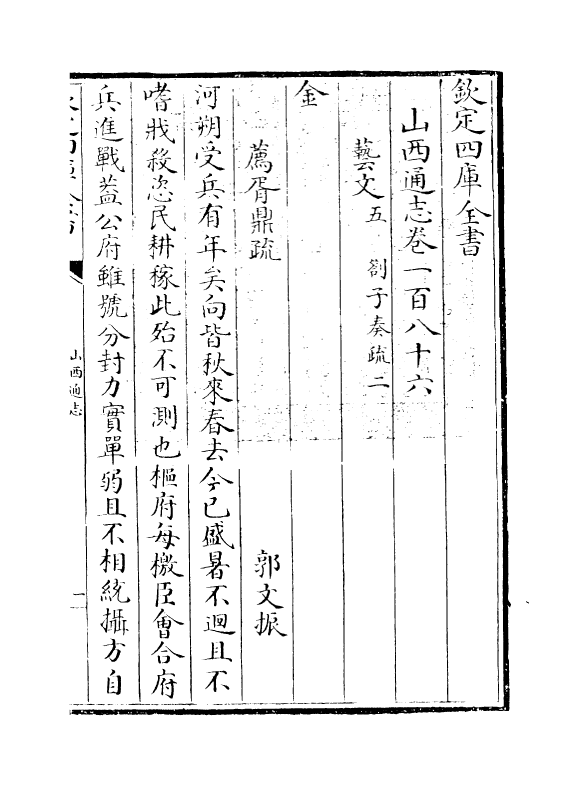 欽定四庫全書
山西通志卷一百八十六
藝文五 劄子奏疏二
金
薦胥鼎疏 郭文振
河朔受兵有年矣向皆秋來春去今已盛暑不迴且不
嗜戕殺恣民耕稼此殆不可測也樞府每檄臣會合府
兵進戰葢公府雖號分封力實單弱且不相統攝方自
山西通志
一